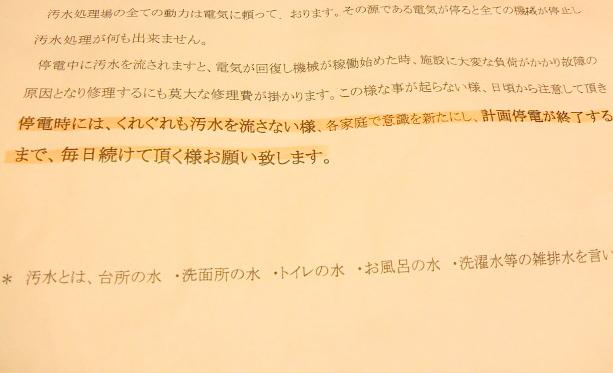 汚水処理場の全ての動力は電気に頼って、おります。その源である電気が停ると全ての機械が停止し
汚水処理が何も出来ません。
停電中に汚水を流されますと、電気が回復し機械が稼働始めた時、施設に大変な負荷がかかり故障の
原因となり修理するにも莫大な修理費が掛かります。この様な事が起らない様、日頃から注意して頂き
停電時には、くれぐれも汚水を流さない様、各家庭で意識を新たにし、計画停電が終了する
まで、毎日続けて頂く様お願い致します。
* 汚水とは、台所の水 ・洗面所の水 ・トイレの水 ・お風呂の水 ・洗濯水等の雑排水を言い